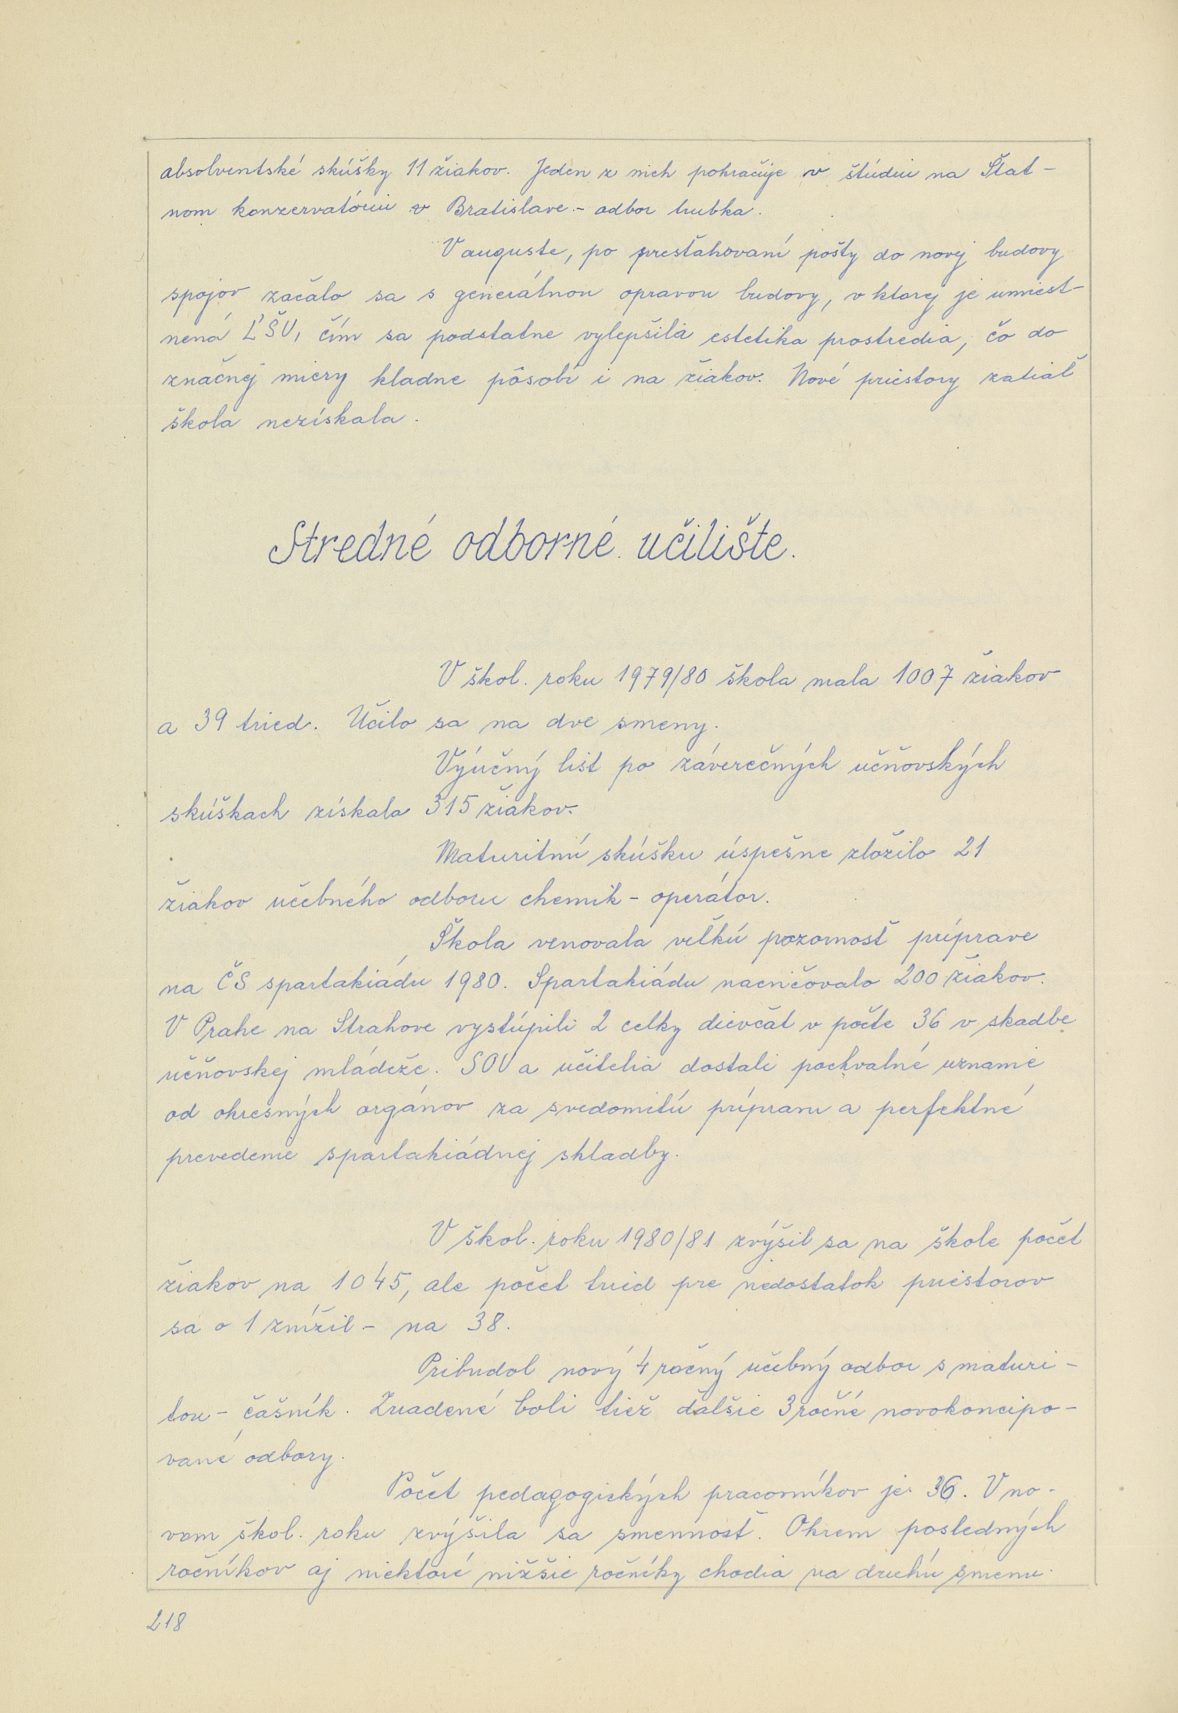 absolventské skúšky 11 žiakov. Jeden z nich pokračuje v štúdiu na Štat-
nom konzervatóriu v Bratislave - odbor trubka.
V auguste, po presťahovaní pošty do novej budovy
spojov začalo sa s generálnou opravou budovy, v ktorej je umiest-
nená ĽŠU, čím sa podstatne vylepšila estetika prostredia, čo do
značnej miery kladne pôsobí i na žiakov. Nové priestory zatiaľ
škola nezískala.
Stredné odborné učilište.
V škol. roku 1979/80 škola mala 1007 žiakov
a 39 tried. Učilo sa na dve smeny.
Výučný list po záverečných učňovských
skúškach získala 315 žiakov.
Maturitnú skúšku úspešne zložilo 21
žiakov učebného odboru chemik - operátor.
Škola venovala veľkú pozornosť príprave
na ČS spartakiádu 1980. Spartakiádu nacvičovalo 200 žiakov.
V Prahe na Strahove vystúpili 2 celky dievčat v počte 36 v skadbe
učňovskej mládeže. SOU a učitelia dostali pochvalné uznanie
od okresných orgánov za svedomitú prípravu a perfektné
prevedenie spartakiádnej skladby.
V škol. roku 1980/81 zvýšil sa na škole počet
žiakov na 1045, ale počet tried pre nedostatok priestorov
sa o 1 znížil - na 38.
Pribudol nový 4 ročný učebný odbor s maturi-
tou - čašník. Zriadené boli tiež ďalšie 3 ročné novokoncipo-
vané odbory.
Počet pedagogických pracovníkov je 36. V no-
vom škol. roku zvýšila sa smennosť. Okrem posledných
ročníkov aj niektoré nižšie ročníky chodia na druhú smenu.
218